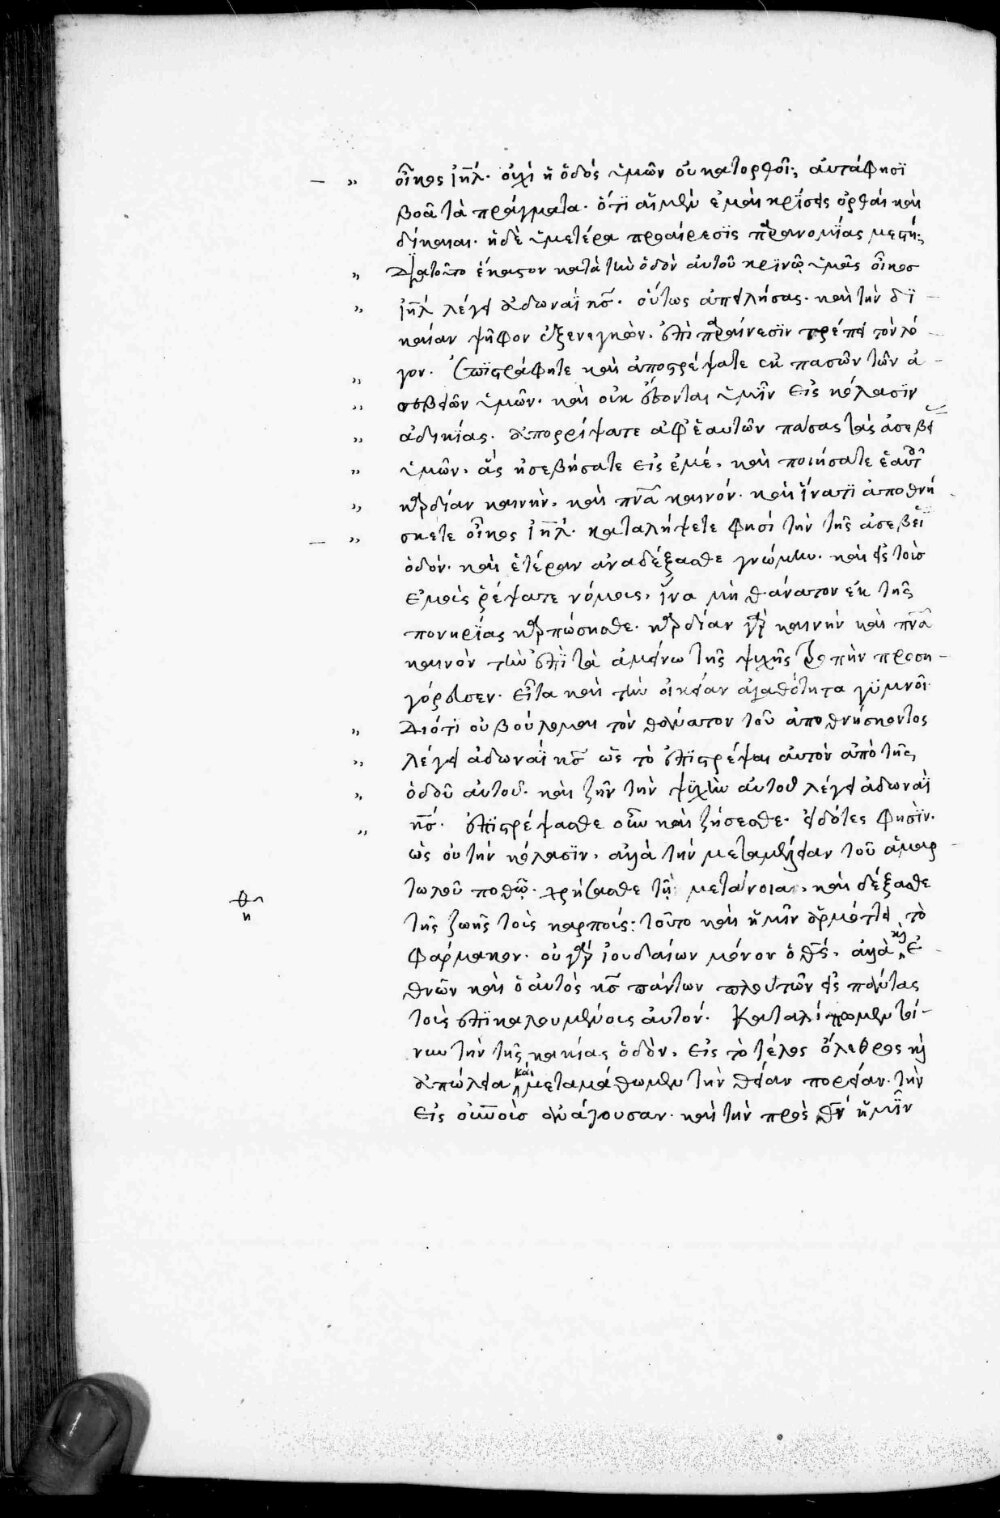 οἶκος ἰη̅λ· οὐχὶ ἡ ὁδὸς ὑμῶν οὐ κατορθοῖ; αὐτά φησϊ
βοᾶ τὰ πράγματα· ὅτϊ αἱ μὲν ἐμαὶ κρίσεις ὀρθαὶ καὶ
δίκαιαι· ἡ δὲ ὑμετέρα προαίρεσϊς παρανομίας μεστή;
Διατοῦτο ἕκαστον κατὰ τὴν ὁδὸν αὐτοῦ κρϊνῶ ὑμᾶς οἶκοσ
ἰη̅λ λέγει ἀδωναῒ κ̅ς· οὕτως ἀπειλήσας· καὶ τὴν δϊ
καίαν ψῆφον ἐξενεγκὼν· ἐπὶ παραίνεσϊν τρέπει τὸν λό
γον· Ἐπϊστράφητε καὶ ἀποστρέψατε ἐκ πασῶν τῶν ἀ
σεβειῶν ὑμῶν· καὶ οὐκ ἔσονται ὑμῖν εἰς κόλασϊν
ἀδικίας· ἀπορρίψατε ἀφ ἑαυτῶν πάσας τὰς ἀσεβεί
ὑμῶν· ἃς ἠσεβήσατε εἰς ἐμέ· καὶ ποιήσατε ἑαυτ
καρδίαν καινὴν· καὶ πν̅α καινόν· καὶ ἵνατϊ ἀποθνή
σκετε οἶκος ἰη̅λ· καταλήψετε φησὶ τὴν τῆς ἀσεβεί
ὁδόν· καὶ ἑτέραν ἀναδέξασθε γνώμην· καὶ εἰς τοὶσ
ἐμοὶς ῥέψατε νόμοις· ἵνα μὴ θάνατον ἐκ τῆς
πονηρϊας καρπώσησθε· καρδίαν γὰρ καινὴν καὶ πν̅α
καινὸν τὴν ἐπὶ τὰ ἀμείνω τῆς ψυχῆς ῥοπὴν προση
γόρευσεν· εἶτα καὶ τὴν οἰκείαν ἀγαθότητα γυμνοῖ·
Διότϊ οὐ βούλομαι τὸν θάνατον τοῦ ἀποθνήσκοντος
λέγει ἀδωναῒ κ̅ς ὡς τὸ ἐπϊστρέψαι αὐτὸν ἀπὸ τῆς
ὁδοῦ αὐτοῦ· καὶ ζῆν τὴν ψυχὴν αὐτοῦ λέγει ἀδωναῒ
κ̅ς· ἐπϊστρέψασθε οὖν καὶ ζήσεσθε· εἰδότες φησὶν·
ὡς οὐ τὴν κόλασϊν· ἀλλὰ τὴν μεταμέλειαν τοῦ ἁμαρ
τωλοῦ ποθῶ· χρήσασθε τῆ μετάνοια· καὶ δέξασθε
τῆς ζωῆς τοὶς καρποίς: τοῦτο καὶ ἡμῖν ἁρμόττει τὸ
φάρμακον· οὐ γὰρ ἰουδαίων μόνον ὁ θ̅ς· ἀλλὰ κὶ ἐ
θνῶν καὶ ὁ αὐτὸς κ̅ς πάντων πλουτῶν εἰς πάντας
τοὺς ἐπϊκαλουμένους αὐτόν· Καταλίπωμεν τοί
νυν τὴν τῆς κακίας ὁδὸν· εἰς τὸ τέλος ὄλεθρος κὶ
ἀπώλεια καὶ μεταμάθωμεν τὴν θείαν πορείαν· τὴν
εἰς οὐ̅νοὺσ ἀνάγουσαν· καὶ τὴν πρὸς θ̅ν ἡμῖν